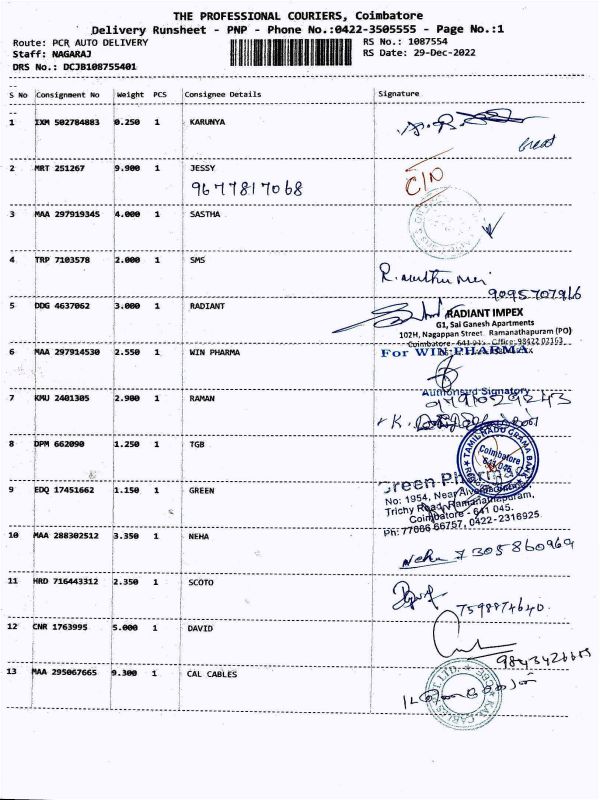 THE PROFESSIONAL COURIERS, Coimbatore
Delivery Runsheet - PNP - Phone No.:0422-3505555 - Page No.:1
Route: PCR AUTO DELIVERY RS No.: 1087554
Staff: NAGARAJ RS Date: 29-Dec-2022
DRS No.: DCJB108755401
S No Consignment No Weight PCS Consignee Details Signature
1 IXM 502784883 0.250 1 KARUNYA
2 MRT 251267 9.900 1 JESSY
9677817068
3 MAA 297919345 4.000 1 SASTHA
4 TRP 7103578 2.000 1 SMS
9095707966
5 DDG 4637062 3.000 1 RADIANT
RADIANT IMPEX
G1, Sai Ganesh Apartments
102H, Nagappan Street. Ramanathapuram (PO)
Coimbatore - 641 045. Office: 98422 02163
6 MAA 297914530 2.550 1 WIN PHARMA
For WIN PHARMA
Authorised Signatory
7 KMU 2401305 2.900 1 RAMAN
8 DPM 662090 1.250 1 TGB
TAMIL NADU GRAMA BANK
Coimbatore
641 045
9 EDQ 17451662 1.150 1 GREEN
Green
No: 1954, Near
Trichy Road, Ramanathapuram,
Coimbatore - 641 045.
Ph: 77086 66757, 0422-2316925
10 MAA 288302512 3.350 1 NEHA
Neha 7305860969
11 HRD 716443312 2.350 1 SCOTO
7598874640
12 CNR 1763995 5.000 1 DAVID
13 MAA 295067665 9.300 1 CAL CABLES